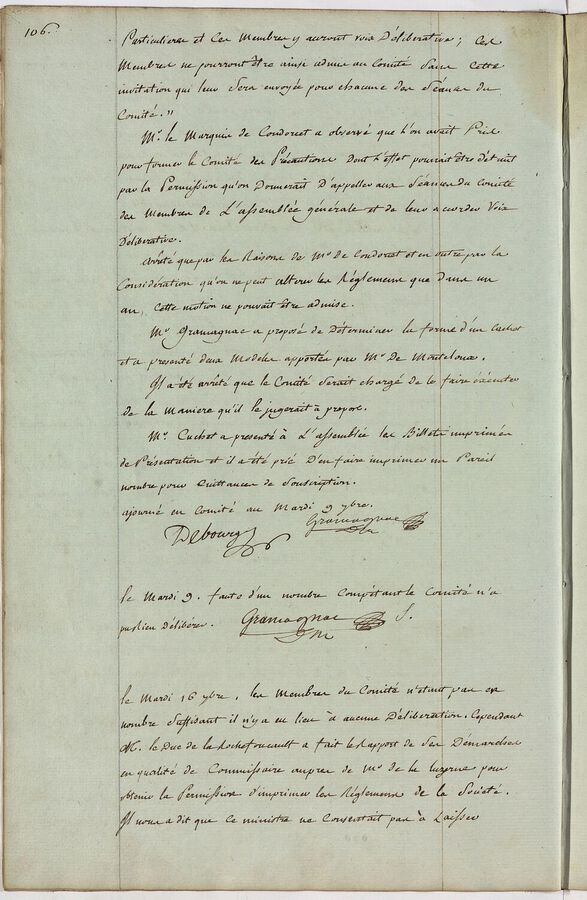 106.
Particulieres et Ces Membres y auront voix Déliberative ; Ces
Membres ne pourront être ainsi admis au Comité Sans Cette
invitation qui leur Sera envoyée pour chacune des Séances du
Comité. "
Mr. le Marquis de Condorcet a observé que l'on avait Pris
pour former le Comité des Précautions Dont l'effet pourait être détruit
par la Permission qu'on Donnerait D'appeller aux Séances du Comité
des Membres de L'assemblée générale et de leur accorder Voix
Déliberative.
Arrêté que par les Raisons de Mr. de Condorcet et en outre par la
Considération qu'on ne peut alterer les Réglemens que Dans un
an, Cette motion ne pouvait être admise.
Mr. Gramagnac a proposé de Déterminer la forme d'un Cachet
et a presenté deux Modeles apportés par Mr. De Montcloux.
Il a été arrêté que le Comité Serait chargé de le faire éxécuter
de la Maniere qu'il le jugerait à propos.
Mr. Cuchet a presenté à L'assemblée les Billets imprimés
de Présentation et il a été prié D'en faire imprimer un Pareil
nombre pour Quittances de Souscription.
ajourné en Comité au Mardi 9 xbre.
Debourg Gramagnac
Le Mardi 9. faute d'un nombre Compétant le Comité n'a
pas lieu Déliberer. Gramagnac S.
Le Mardi 16 xbre. les Membres du Comité n'étant pas en
nombre Suffisant il n'y a eu lieu à aucune Déliberation. Cependant
M. le Duc de la Rochefoucault a fait le Rapport de Ses Démarches
en qualité de Commissaire auprès de Mr. de la Luzerne pour
obtenir la Permission d'imprimer les Réglemens de la Société.
Il nous a dit que Ce ministre ne Consentait pas à Laisser